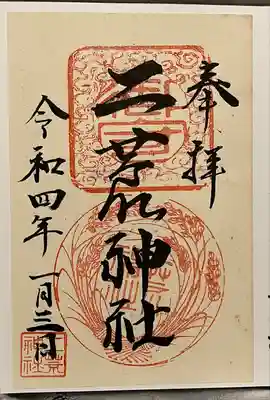 奉拝
二荒山神社
令和四年一月三日